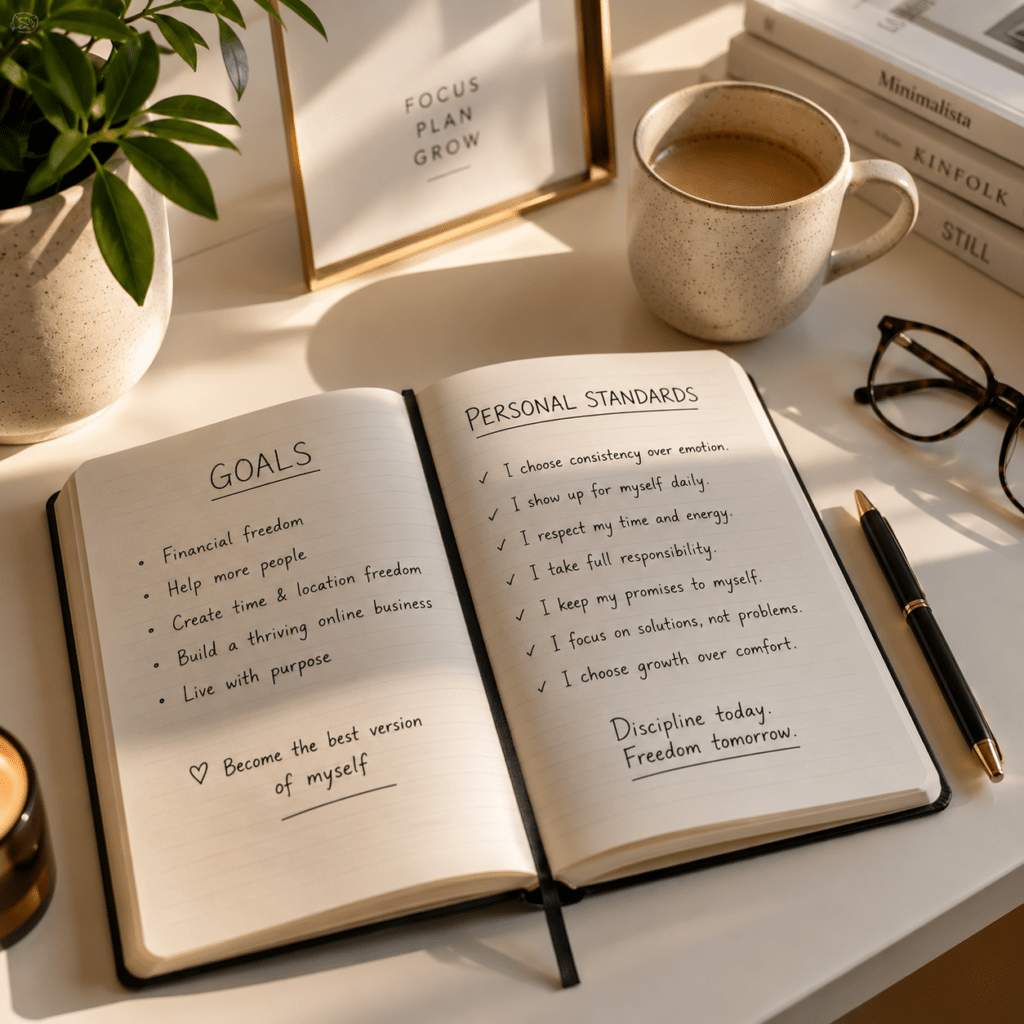 FOCUS
PLAN
GROW
Minimalista
KINFOLK
STILL
GOALS
• Financial freedom
• Help more people
• Create time & location freedom
• Build a thriving online business
• Live with purpose
♡ Become the best version
of myself
PERSONAL STANDARDS
✓ I choose consistency over emotion.
✓ I show up for myself daily.
✓ I respect my time and energy.
✓ I take full responsibility.
✓ I keep my promises to myself.
✓ I focus on solutions, not problems.
✓ I choose growth over comfort.
Discipline today.
Freedom tomorrow.